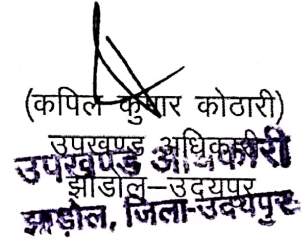 (कपिल कुमार कोठारी)
उपखण्ड अधिकारी
उपखण्ड अधिकारी
झाडोल–उदयपुर
झाड़ोल, जिला-उदयपुर